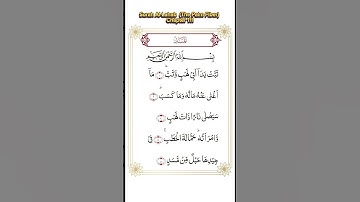 Surah Al-Lahab (The Palm Fiber)
Chapter 111
بِسْمِ اللَّهِ الرَّحْمَٰنِ الرَّحِيمِ
تَبَّتْ يَدَا أَبِي لَهَبٍ وَتَبَّ ١ مَا
أَغْنَىٰ عَنْهُ مَالُهُ وَمَا كَسَبَ ٢
سَيَصْلَىٰ نَارًا ذَاتَ لَهَبٍ ٣
وَامْرَأَتُهُ حَمَّالَةَ الْحَطَبِ ٤ فِي
جِيدِهَا حَبْلٌ مِّن مَّسَدٍ ٥